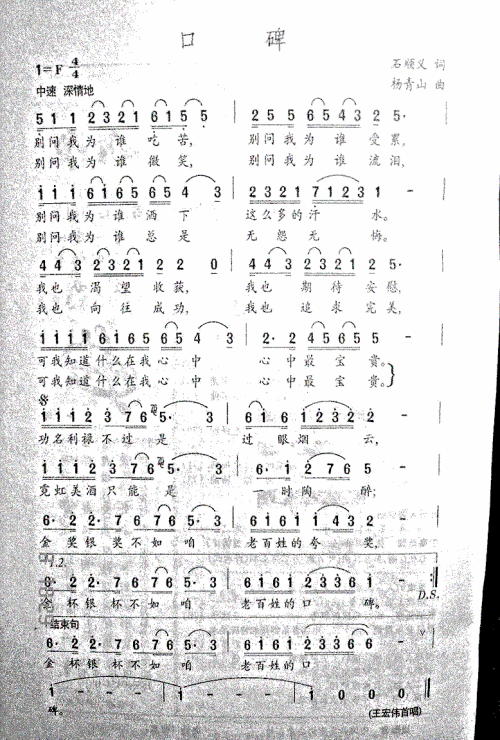 口 碑
1=F 4/4
石顺义 词
中速 深情地
杨青山 曲
5 1 1 2 3 2 1 6 1 5 5 | 2 5 5 6 5 4 3 2 5· |
别问我为谁吃苦, 别问我为谁受累,
别问我为谁微笑, 别问我为谁流泪,
1 1 1 6 1 6 5 6 5 4 3 | 2 3 2 1 7 1 2 3 1 - |
别问我为谁洒下 这么多的汗水。
别问我为谁总是 无怨无悔。
4 4 3 2 3 2 1 2 2 0 | 4 4 3 2 3 2 1 2 5· |
我也渴望收获, 我也期待安慰,
我也向往成功, 我也追求完美,
1 1 1 1 6 1 6 5 6 5 4 3 | 2· 2 4 5 6 5 5 - |
可我知道什么在我心中 心中最宝贵。
可我知道什么在我心中 心中最宝贵。}
1 1 1 2 3 7 6 5· 3 | 6 1 6 1 2 3 2 2 - |
功名利禄不过是 过眼烟云,
1 1 1 2 3 7 6 5· 3 | 6· 1 2 7 6 5 - |
霓虹美酒只能是 一时陶醉;
6· 2 2· 7 6 7 6 5· 3 | 6 1 6 1 1 4 3 2 - |
金奖银奖不如咱 老百姓的夸奖,
1.2.
6· 2 2· 7 6 7 6 5· 3 | 6 1 6 1 2 3 3 6 1 - :‖
金杯银杯不如咱 老百姓的口碑。 D.S.
结束句
6· 2 2· 7 6 7 6 5· 3 | 6 1 6 1 2 3 3 6 - |
金杯银杯不如咱 老百姓的口
1 - - - | 1 - - - | 1 0 0 0 ‖
碑。 (王宏伟首唱)